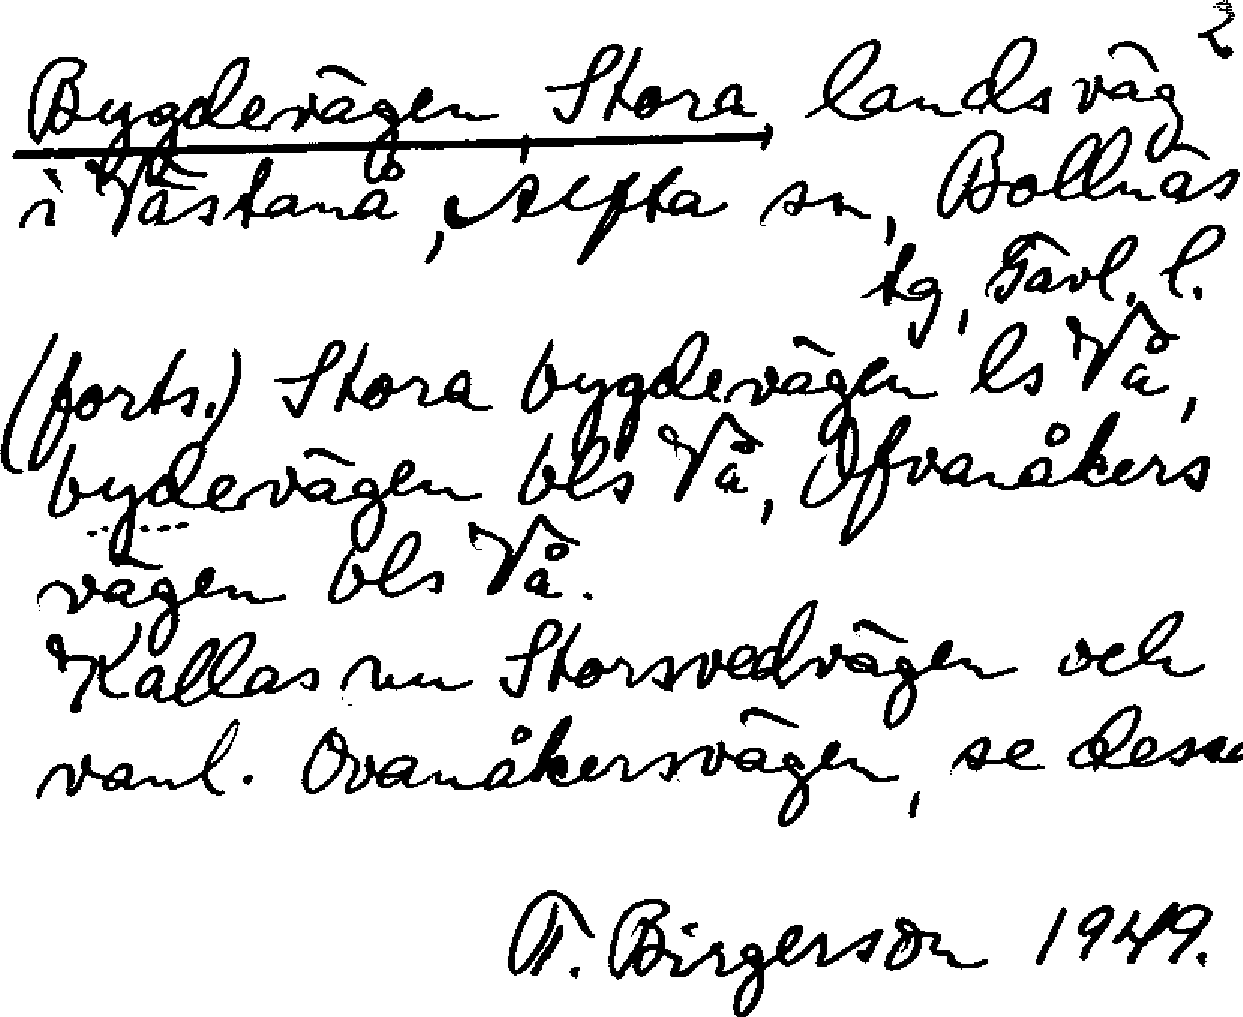 2
Bygdevägen, Stora, landsväg
i Västanå, Alfta sn, Bollnäs
tg, Gävl. l.
(forts.) Stora bygdevägen ls Vå,
bydevägen bls Vå, Ofvanåkers
vägen bls Vå.
Kallas nu Storsvedvägen och
vanl. Ovanåkersvägen, se dessa
T. Birgerson 1949.